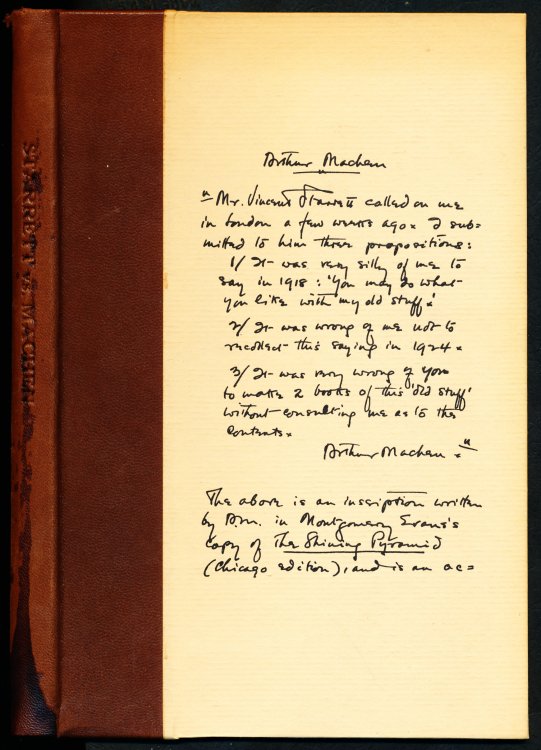 STARRETT vs. MACHEN
Arthur Machen
"Mr. Vincent Starrett called on me
in London a few weeks ago. I sub=
mitted to him three propositions:
1/ It was very silly of me to
say in 1918: 'You may do what
you like with my old stuff.'
2/ It was wrong of me not to
recollect this saying in 1924.
3/ It was very wrong of you
to make 2 books of this 'old stuff'
without consulting me as to the
contents.
Arthur Machen."
The above is an inscription written
by A.M. in Montgomery Evans's
copy of The Shining Pyramid
(Chicago edition), and is an ac=